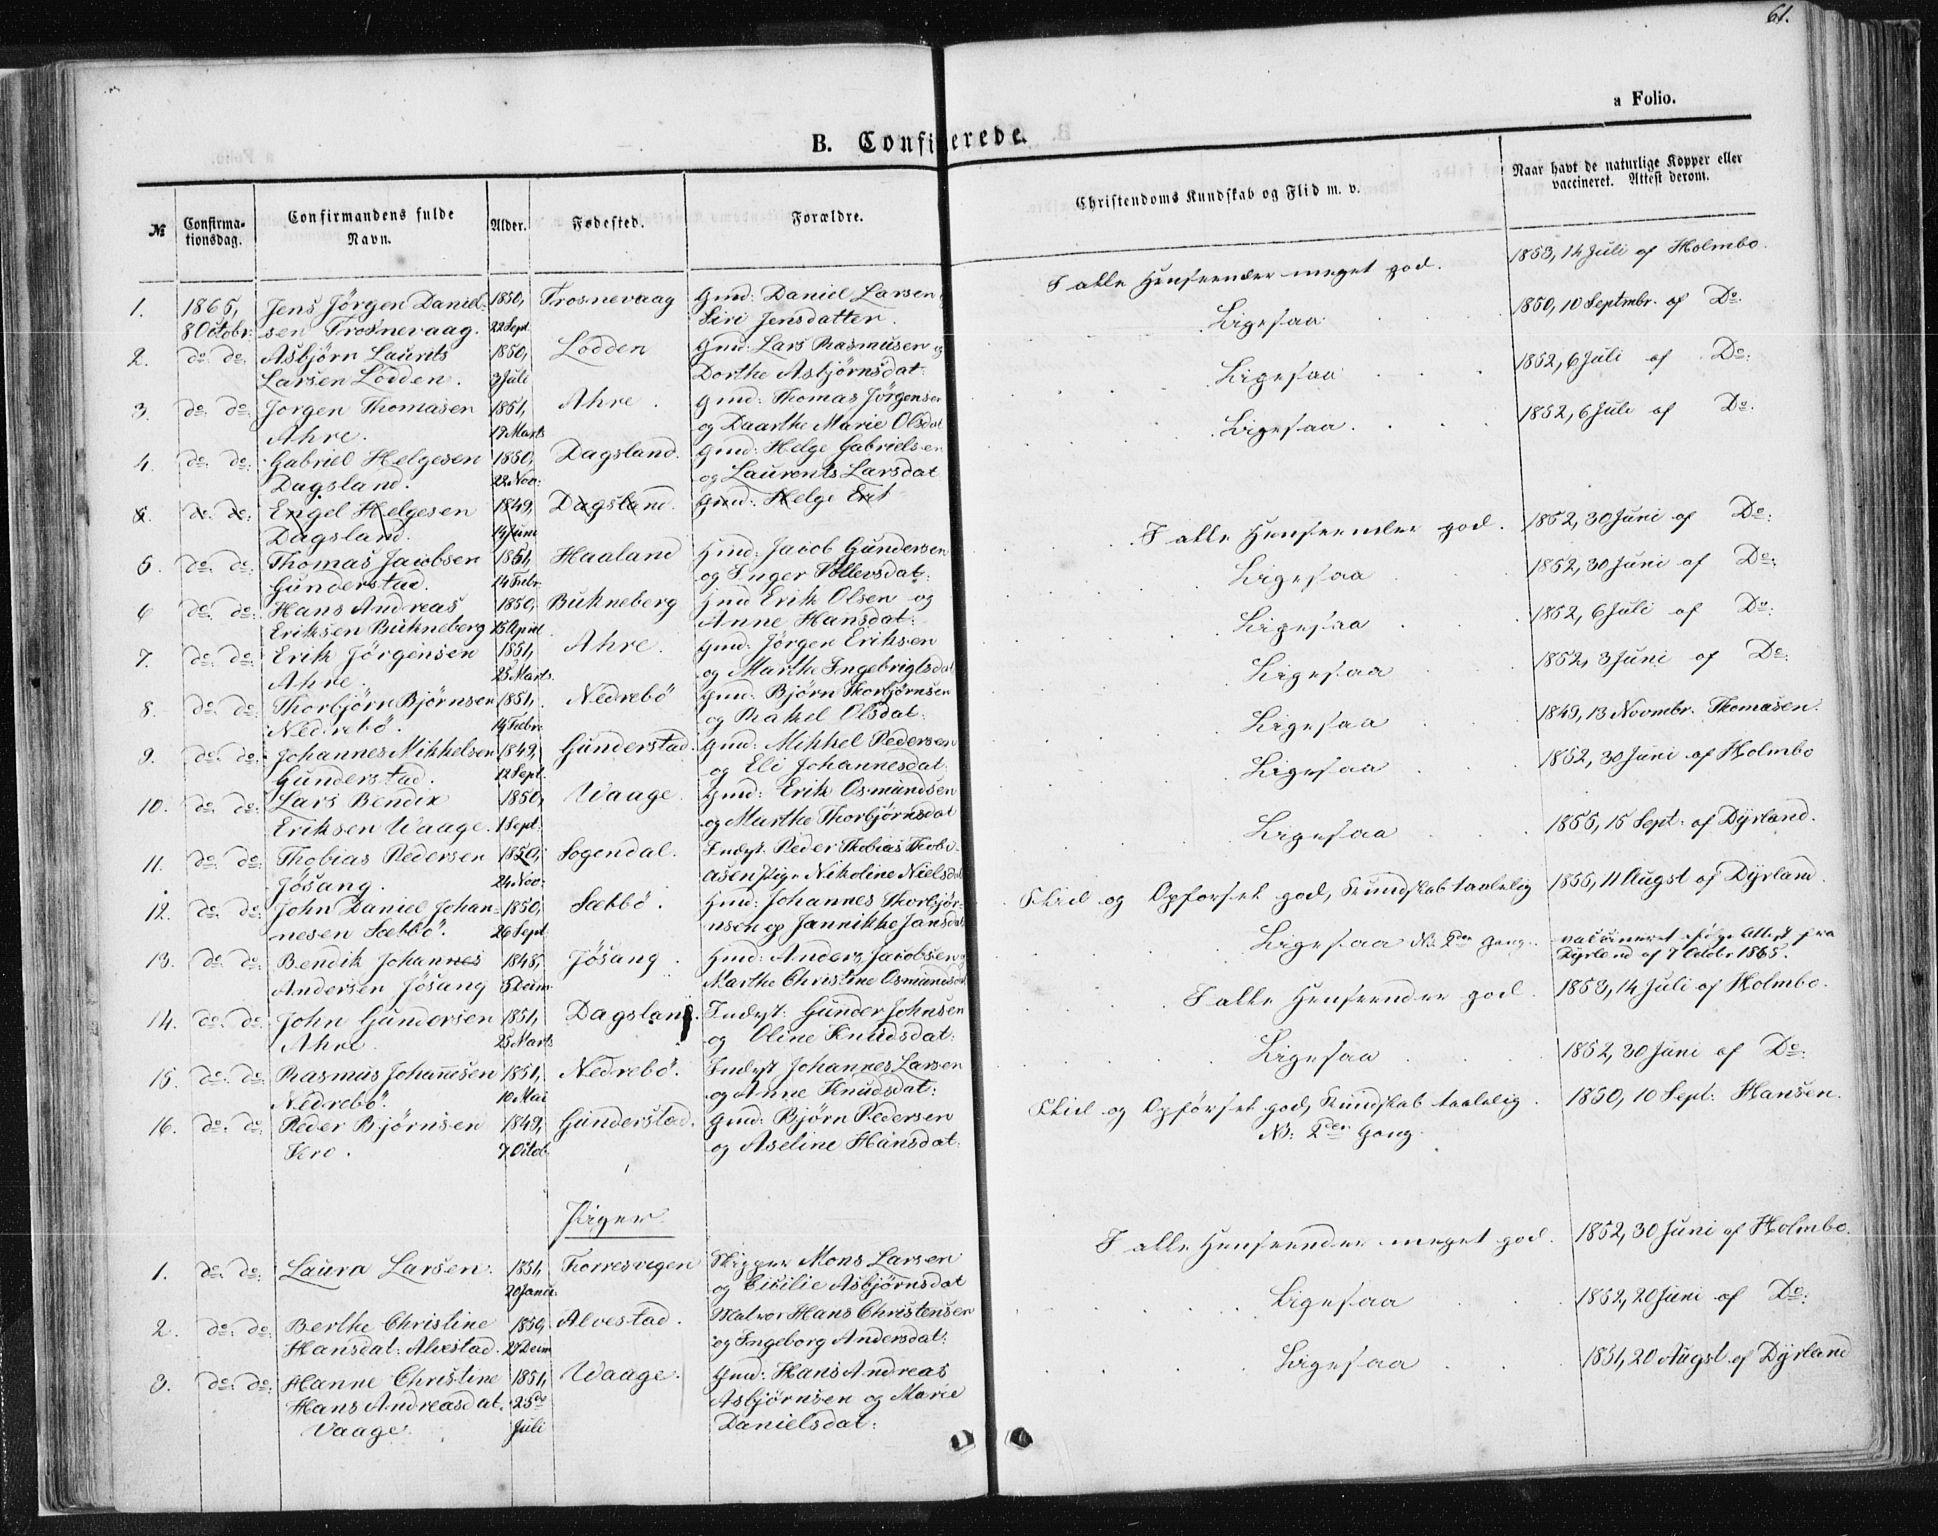 61.
a Folio.
B. Confirmerede.
№ Confirma-tionsdag. Confirmandens fulde Navn. Alder. Fødested. Forældre. Christendoms Kundskab og Flid m. v. Naar havt de naturlige Kopper eller vaccineret. Attest derom.
1. 1865, Jens Jörgen Daniel- 1850, Frosnevaag Gmd: Daniel Larsen I alle Henseender meget god. 1853, 14 Juli af Holmbo.
8 Octobr. sen Frosnevaag. 22 Sept. Siri Jensdatter.
2. do. do. Asbjörn Laurits 1850, Lodden Gmd: Lars Rasmusen og Ligesaa 1850, 10 Septmbr. af Do:
Larsen Lodden. 3 Juli Dorthe Asbjörnsdat
3. do. do. Jörgen Thomasen 1851, Ahre. Gmd: Thomas Jörgensen Ligesaa 1852, 6 Juli af Do:
Ahre. 19 Marts og Daarthe Marie Olsdat
4. do. do. Gabriel Helgesen 1850, Dagsland. Gmd: Helge Gabrielsen Ligesaa. 1852, 6 Juli af Do:
Dagsland. 22 Nov: og Laurents Larsdat
5. do. do. Engel Helgesen 1849, Dagsland. Gmd: Helge Erik
Dagsland. 14 Juni
5. do. do. Thomas Jacobsen 1851, Haaland Gmd: Jacob Gundersen I alle Henseender god. 1852, 30 Juni af Do:
Gunderstad. 14 Febr. og Inger Tollevsdat:
6 do. do. Hans Andreas 1850, Bukneberg Gmd Erik Olsen og Ligesaa 1852, 30 Juni af Do:
Eriksen Bukneberg 15 April Anne Hansdat:
7. do. do. Erik Jörgensen 1851, Ahre. Gmd: Jörgen Eriksen Ligesaa 1852, 6 Juli af Do:
Ahre. 25 Marts og Marthe Ingebrigtsdat
8. do. do. Thorbjörn Björnsen 1851, Nedrebö Gmd: Björn Thorbjörnsen Ligesaa 1852, 3 Juni af Do:
Nedrebö. 14 Febr. og Rakel Olsdat:
9. do. do. Johannes Mikkelsen 1849, Gunderstad. Gmd: Mikkel Pedersen Ligesaa 1849, 13 Novmbr. Thomasen.
Gunderstad. 12 Sept. og Eli Johannesdat:
10. do. do. Lars Bendix 1850, Waage. Gmd: Erik Osmundsen Ligesaa 1852, 30 Juni af Holmbo
Eriksen Waage. 1 Sept: og Marthe Thorbjörnsdat
11. do. do. Thobias Pedersen 1850, Sogendal. Indst. Peder Thobias Thobi- Ligesaa 1855, 15 Sept: af Dyrland.
Jösang. 24 Nov: asen Pige Nikoline Nielsdat
12. do. do. John Daniel Johan- 1850, Sæbbö. Gmd: Johannes Thorbjör- Flid og Opförsel god, Kundskab taalelig 1855, 11 Augst af Dyrland.
nesen Sæbbö. 26 Sept nsen og Jannikke Jansdat
13. do. do. Bendik Johannes 1848, Jösang. Gmd: Anders Jacobsen og Ligesaa NB. 2den Gang. vaccineret ifölge Attest fra
Andersen Jösang 5 Decem Marthe Christine Osmundsdat Dyrland af 7 Octobr 1865.
14. do. do. John Gundersen 1851, Dagsland. Indst: Gunder Johnsen I alle Henseender god. 1853, 14 Juli af Holmbo.
Ahre. 25 Marts og Oline Knudsdat:
15. do. do. Rasmus Johannsen 1851, Nedrebö. Indst Johannes Larsen Ligesaa 1852, 30 Juni af Do:
Nedrebö. 10 Mai og Anne Knudsdat:
16. do. do. Peder Björnsen 1849, Gunderstad. Gmd: Björn Pedersen Flid og Opförsel god, Kundskab taalelig. 1850, 10 Sept: Hansen.
Kro. 7 Octob. og Aseline Hansdat: NB: 2den Gang.
Piger.
1. do. do. Laura Larsen. 1851, Torresvigen Skipper Mons Larsen I alle Henseender meget god. 1852, 30 Juni af Holmbo.
20 Janr. og Cicilie Asbjörnsdat
2. do. do. Berthe Christine 1850, Alvestad. Matros Hans Christensen Ligesaa 1852, 20 Juni af Do:
Hansdat: Alvestad. 27 Decm og Ingeborg Andersdat:
3. do. do. Hanne Christine 1851, Waage. Gmd: Hans Andreas Ligesaa 1851, 20 Augst af Dyrland
Hans Andreasdat. 25de Asbjörnsen og Marie
Vaage. Juli Danielsdat: